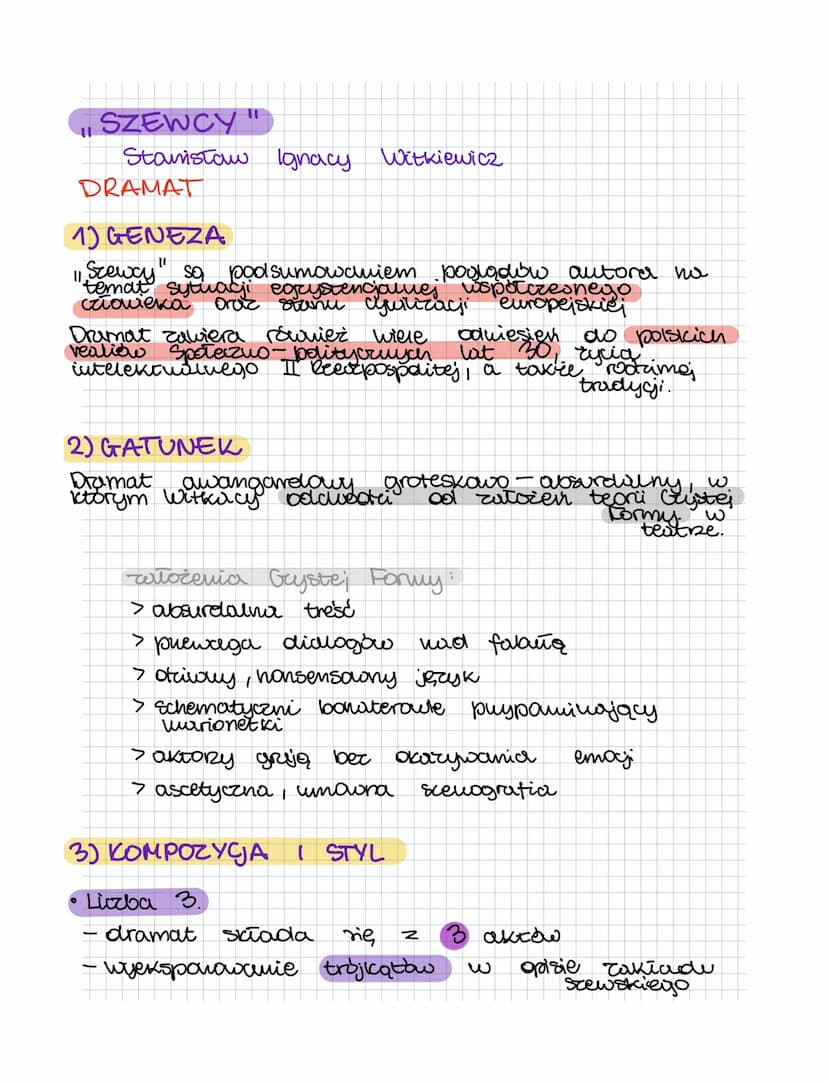 „SZEWCY"
Stanisław Ignacy Witkiewicz
DRAMAT
1) GENEZA
„Szewcy" są podsumowaniem poglądów autora na
temat sytuacji egzystencjalnej współczesnego
człowieka oraz stanu cywilizacji europejskiej
Dramat zawiera również wiele odniesień do polskich
realiów społeczno-politycznych lat 30, życia
intelektualnego II Rzeczpospolitej, a także rodzimej
tradycji.
2) GATUNEK
Dramat awangardowy groteskowo-absurdalny, w
którym Witkacy odchodzi od założeń teorii Czystej
Formy w
teatrze.
założenia Czystej Formy:
> absurdalna treść
> przewaga dialogów nad fabułą
> dziwny, nonsensowny język
> schematyczni bohaterowie przypominający
marionetki
> aktorzy grają bez okazywania emocji
> ascetyczna, umowna scenografia
3) KOMPOZYCJA I STYL
• Liczba 3.
- dramat składa się z 3 aktów
- wyeksponowanie trójkątów w opisie zakładu
szewskiego